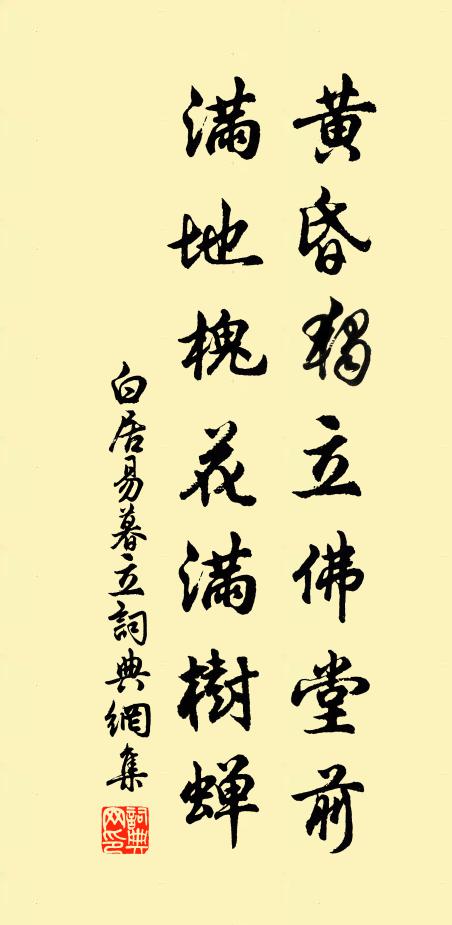 黄昏獨立佛堂前
滿地槐花滿樹蟬
白居易暮立詞典網集
詞典网印